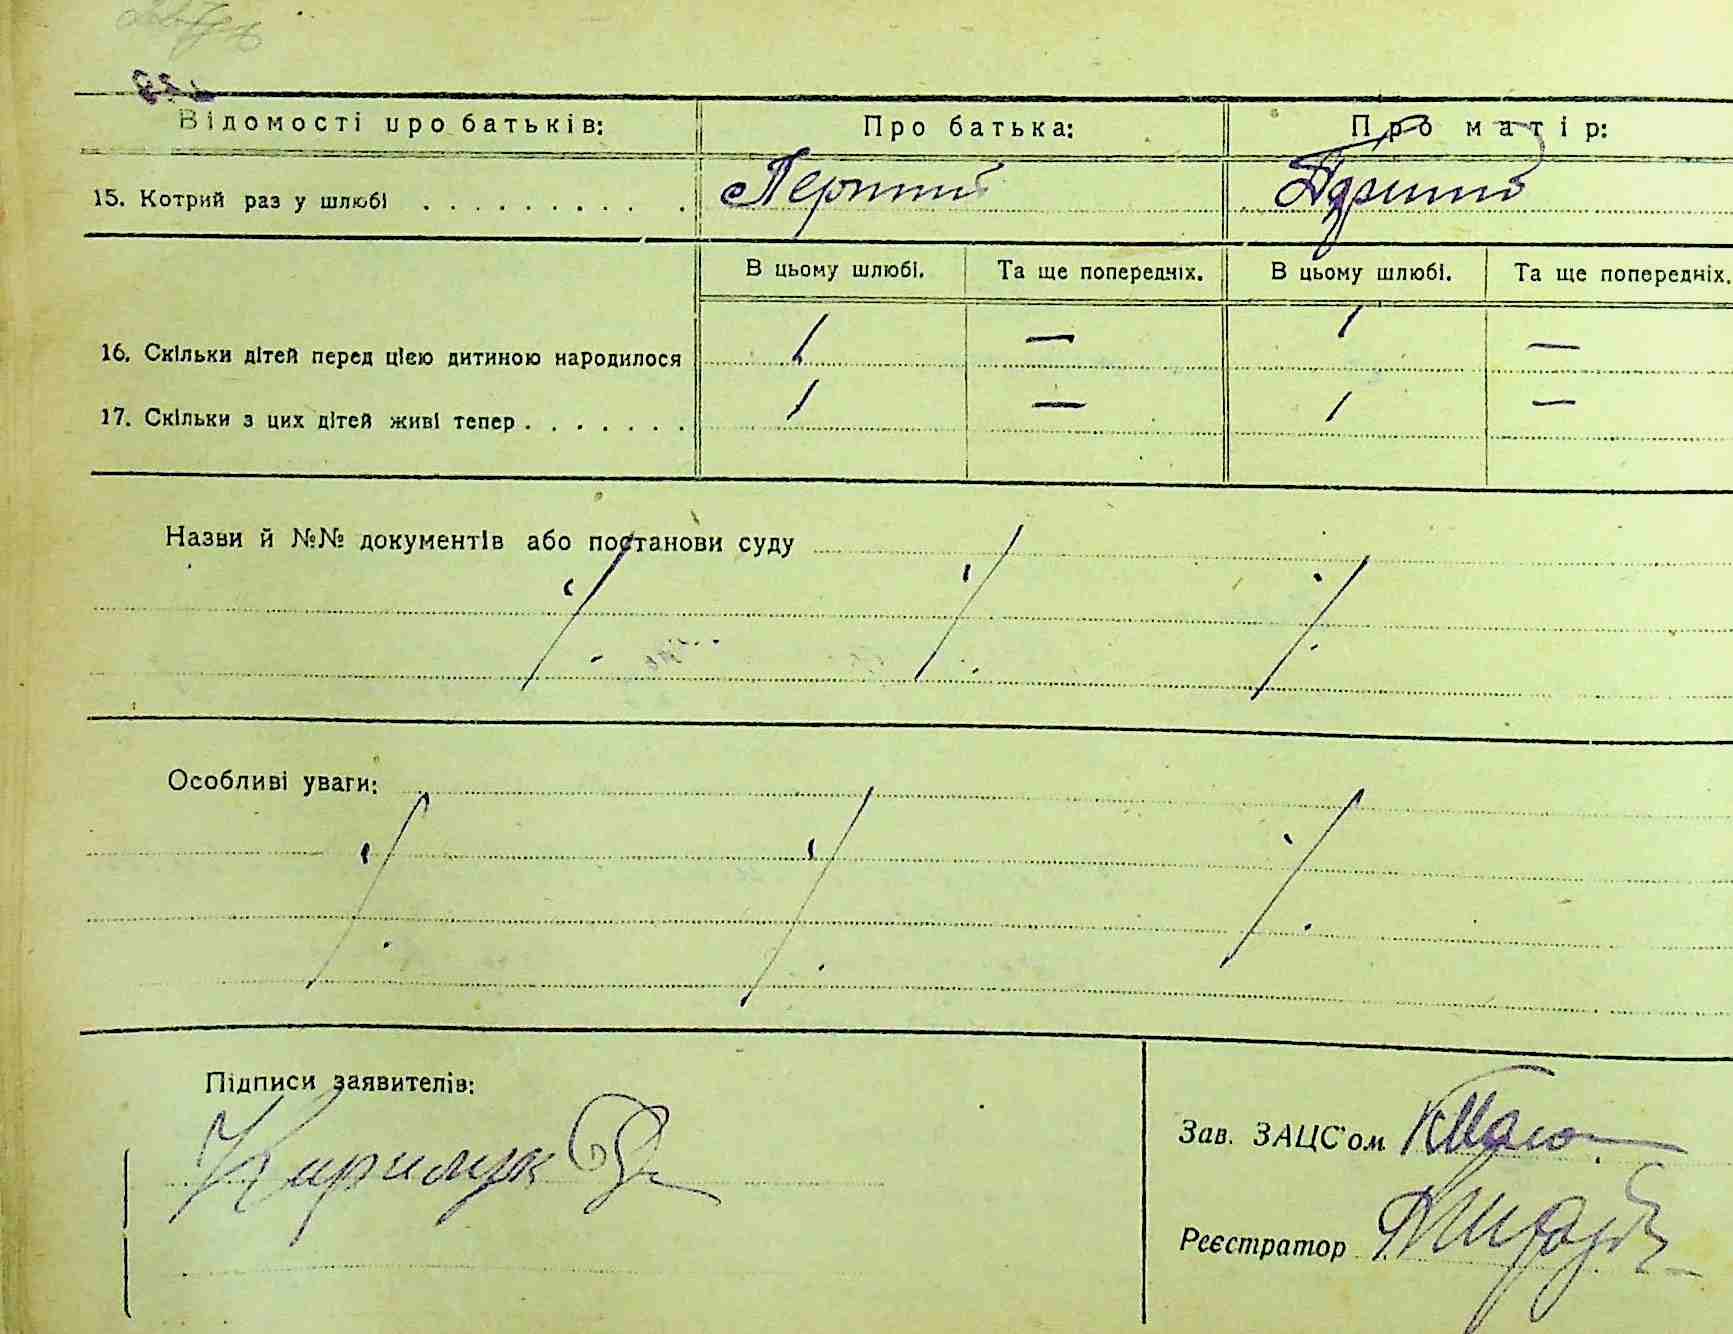 Відомості про батьків:
Про батька:
Про матір:
15. Котрий раз у шлюбі . . . . . . . . . .
Перший
В цьому шлюбі.
Та ще попередніх.
В цьому шлюбі.
Та ще попередніх.
16. Скільки дітей перед цією дитиною народилося
1 — 1 —
17. Скільки з цих дітей живі тепер . . . . . . .
1 — 1 —
Назви й №№ документів або постанови суду
Особливі уваги:
Підписи заявителів:
Зав. ЗАЦС'ом
Реєстратор